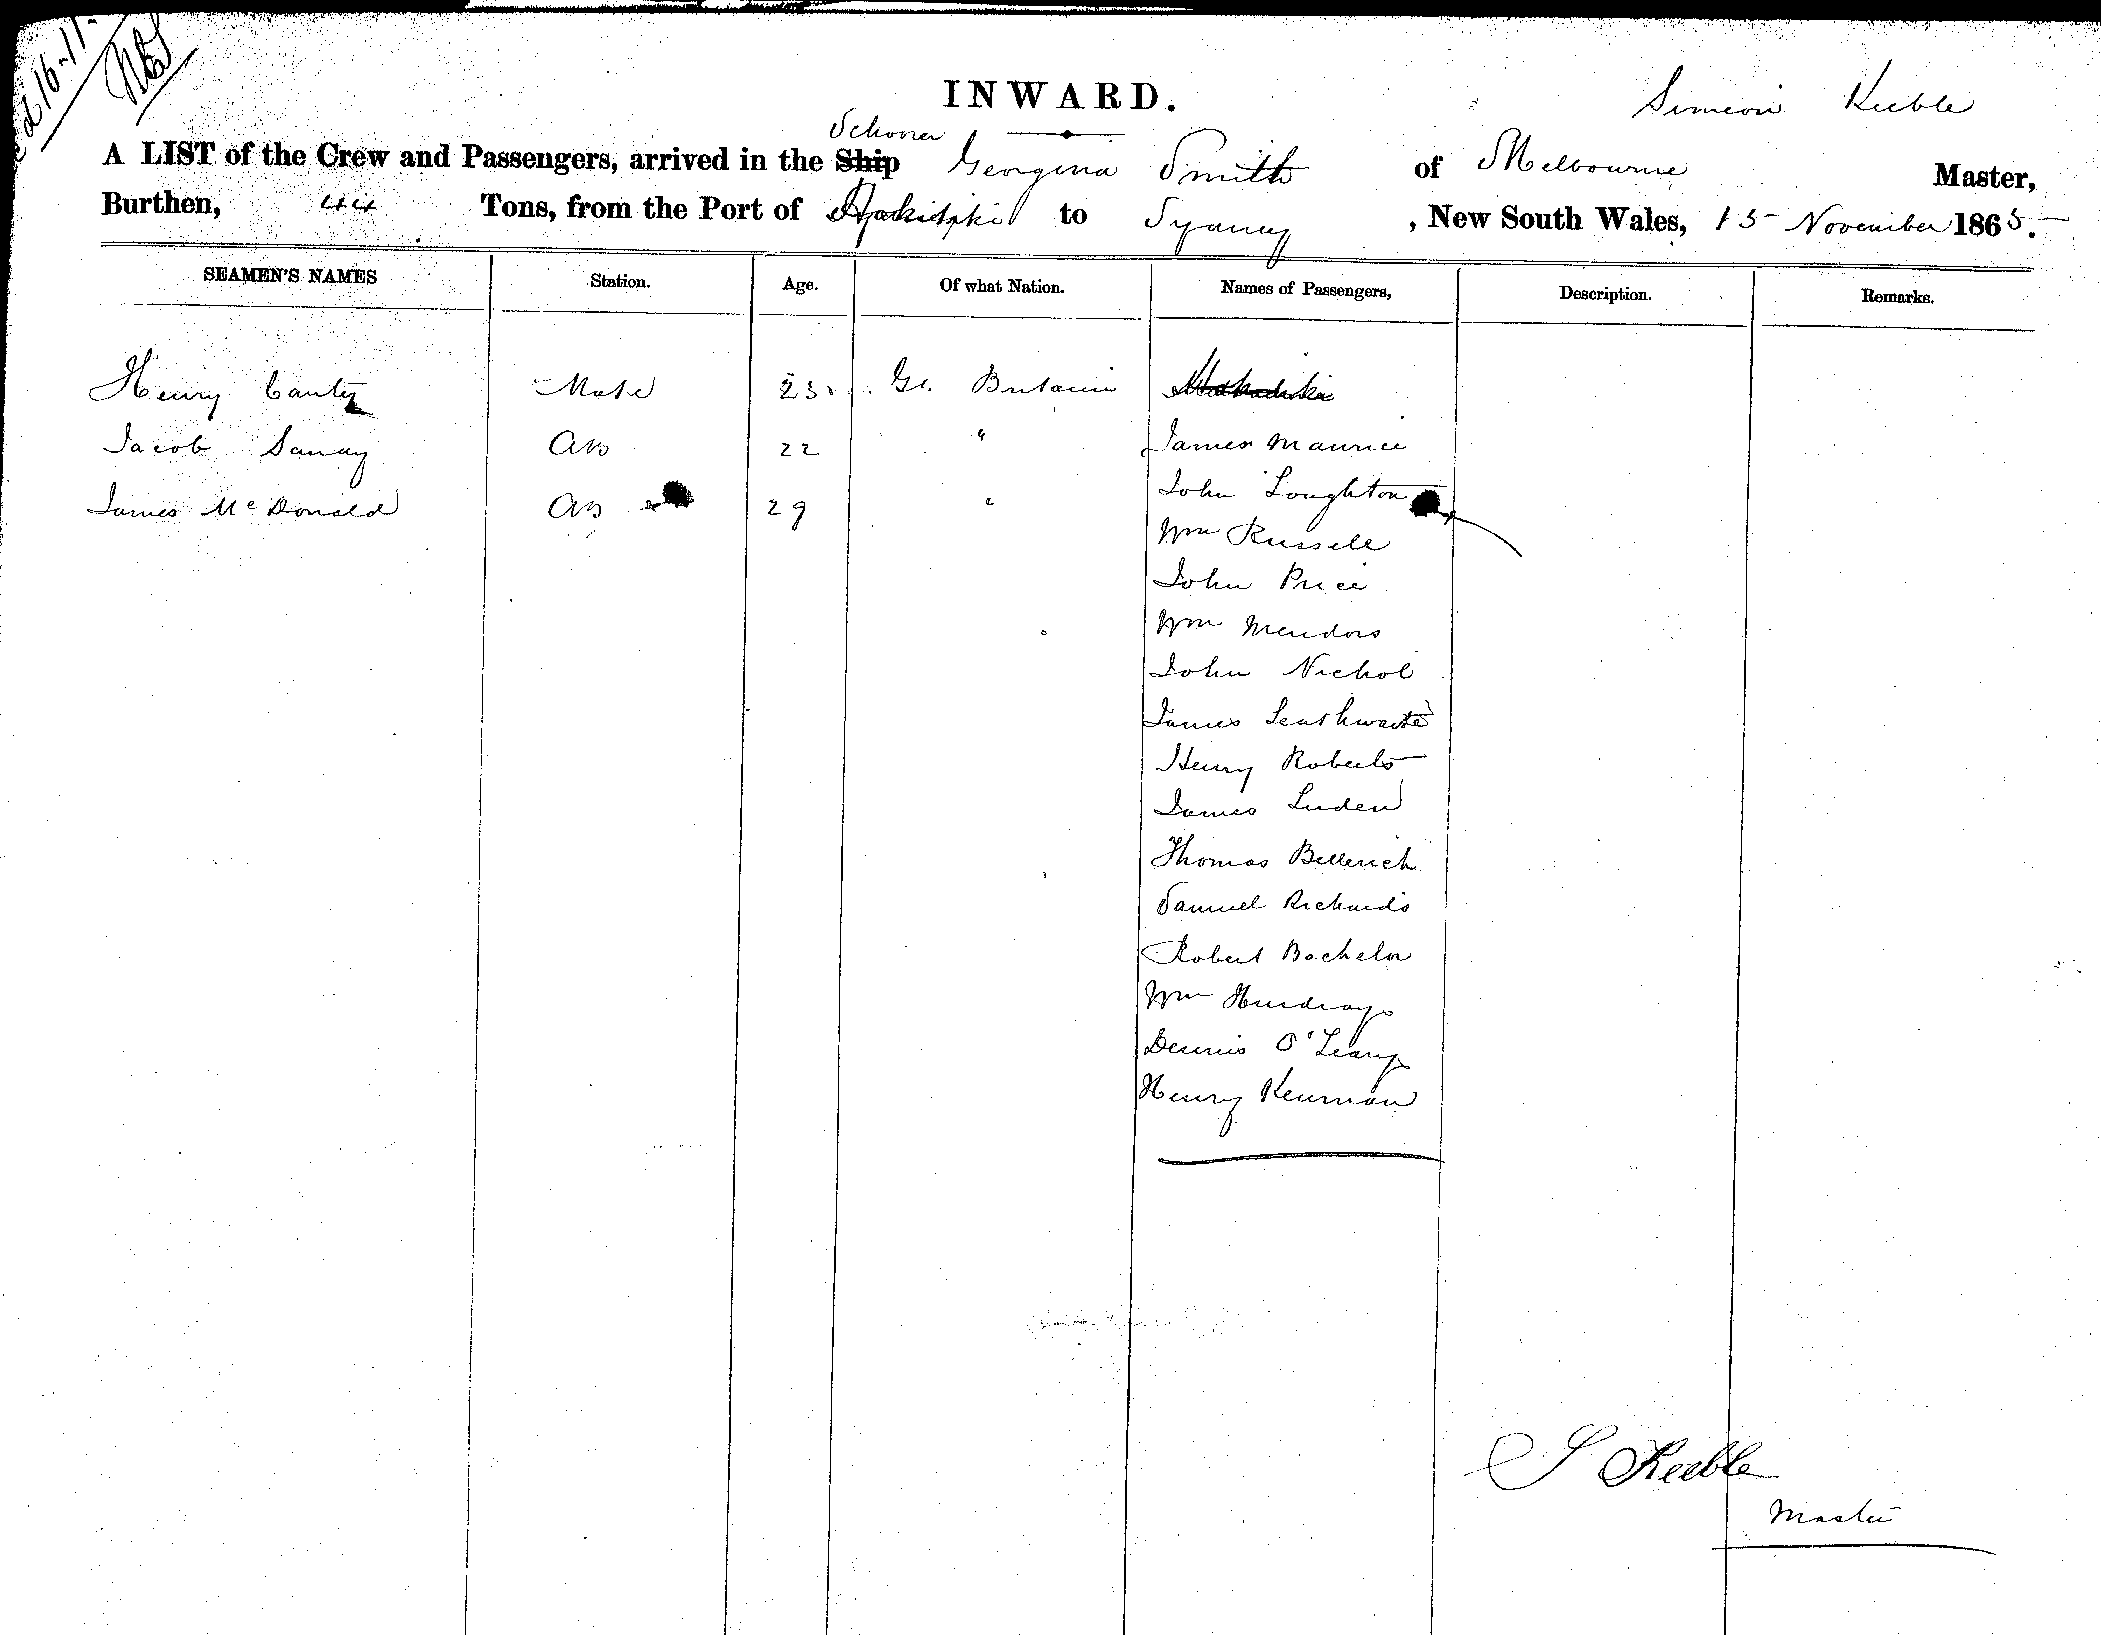 16-11-
INWARD.
Simeon Keeble
Schooner
A LIST of the Crew and Passengers, arrived in the Ship Georgina Smith of Melbourne Master,
Burthen, 44 Tons, from the Port of Hokitika to Sydney, New South Wales, 15 November 1865.
SEAMEN'S NAMES Station. Age. Of what Nation. Names of Passengers, Description. Remarks.
Henry Canty Mate 23 Gt. Britain
Jacob AB 22 " James Maurice
James McDonald AB 29 " John Loughton
Wm Russell
John Price
Wm Meadows
John Nichol
James Leathwaite
Henry Roberts
James Luden
Thomas Bellerich
Samuel Richards
Robert Bachelor
Wm
Dennis O'Leary
Henry Kenman
S Keeble
Master